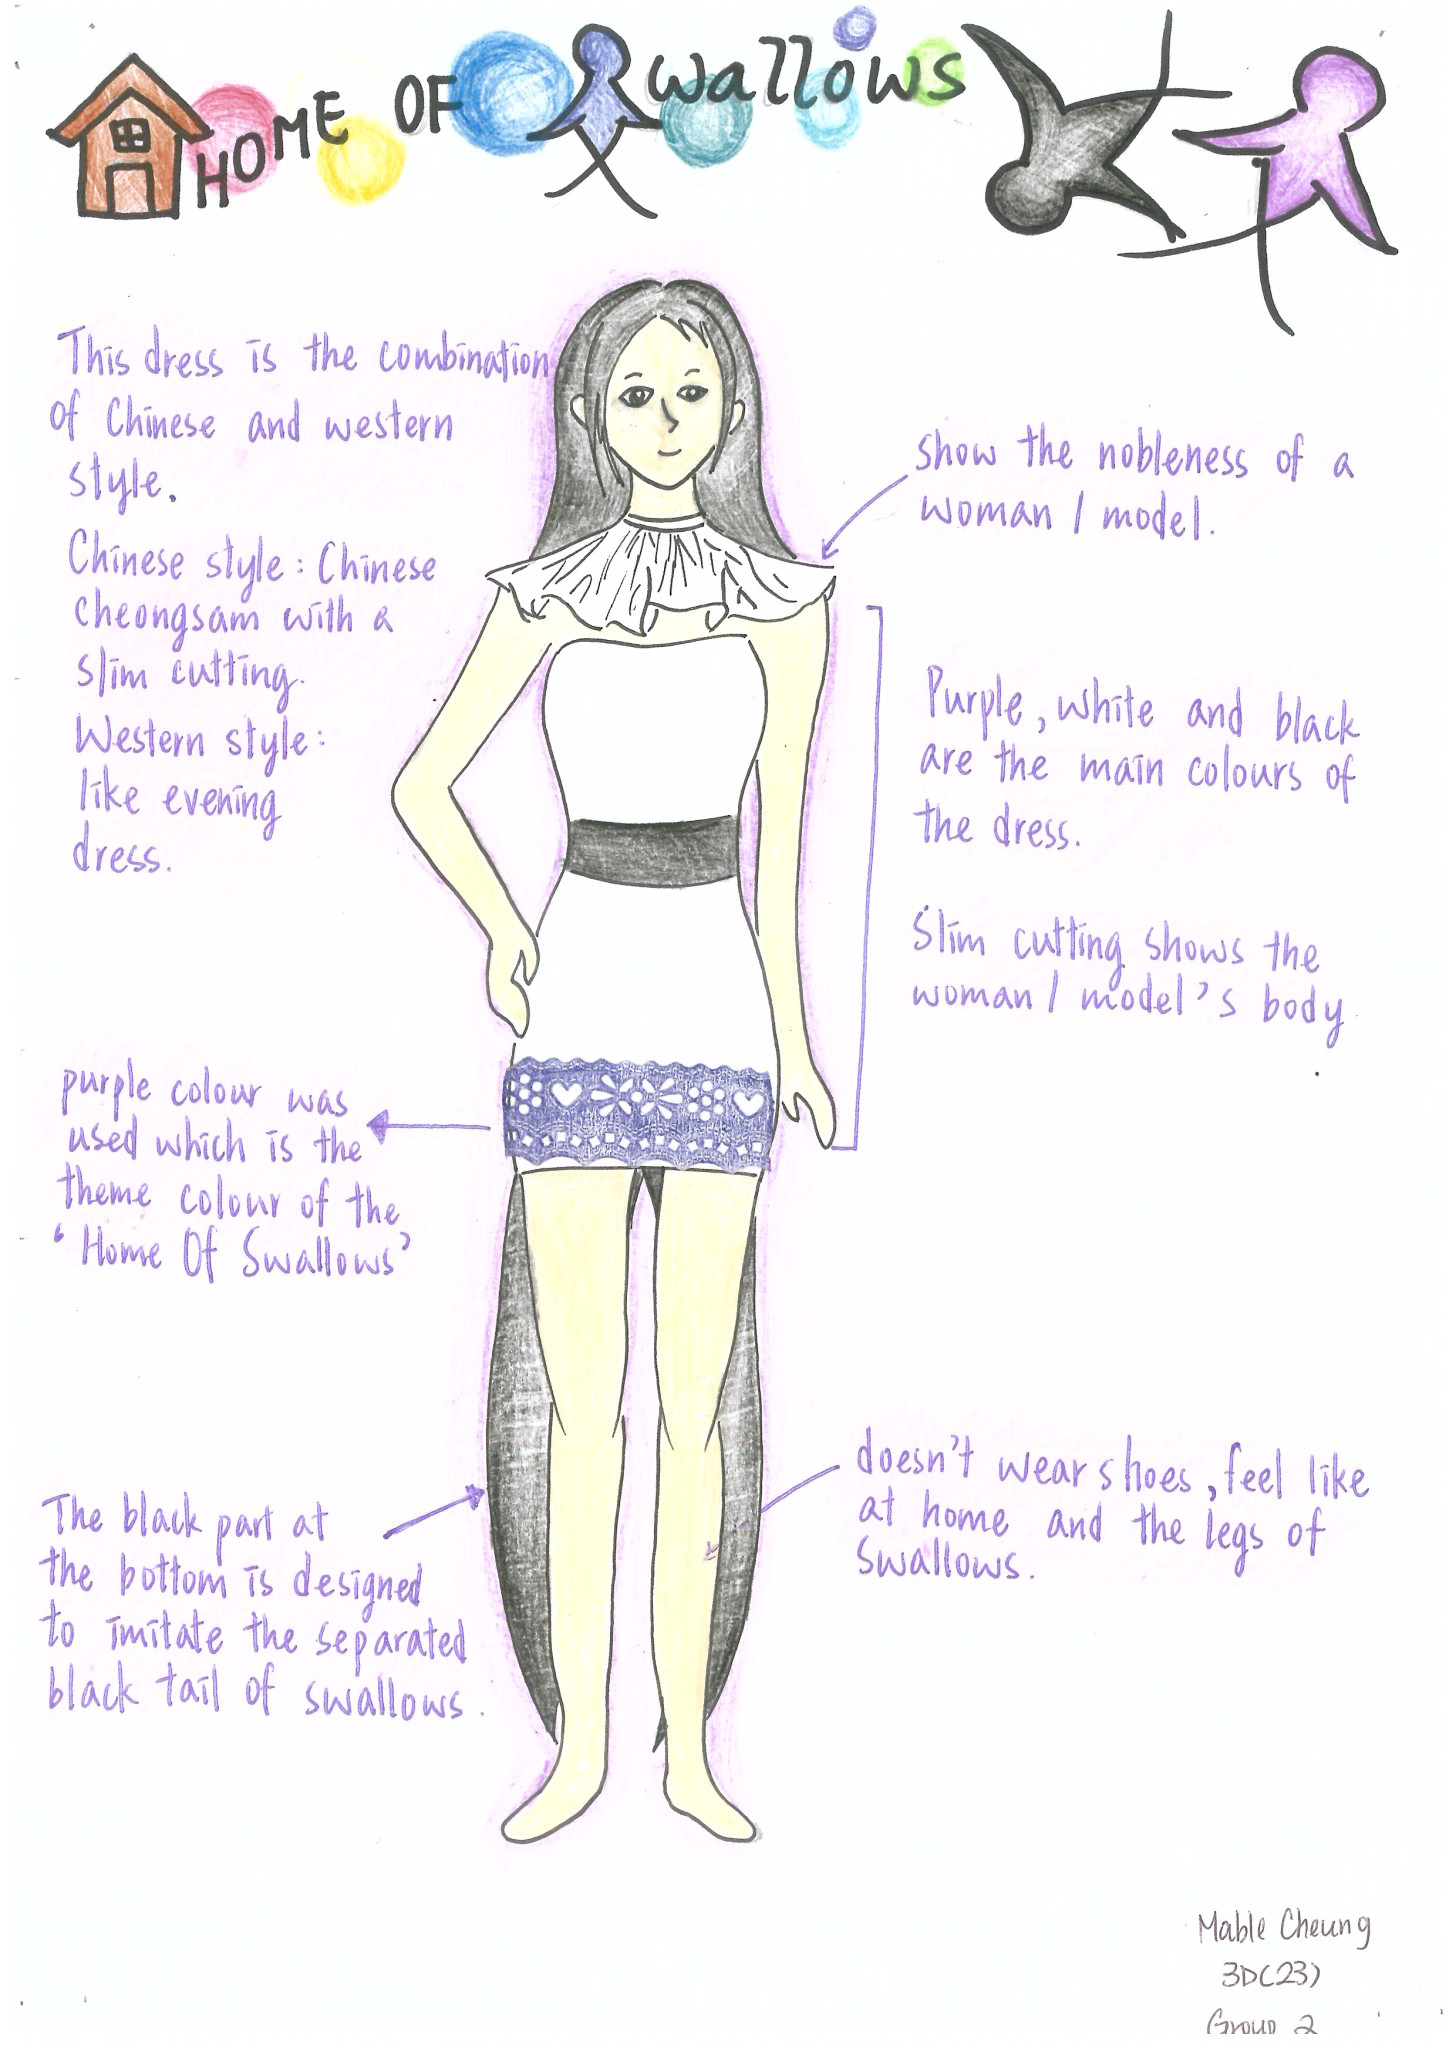 HOME OF Swallows
This dress is the combination
of Chinese and western
style.
Chinese style: Chinese
cheongsam with a
slim cutting.
Western style:
like evening
dress.
show the nobleness of a
woman / model.
Purple, white and black
are the main colours of
the dress.
Slim cutting shows the
woman / model's body
purple colour was
used which is the
theme colour of the
'Home Of Swallows'
The black part at
the bottom is designed
to imitate the separated
black tail of swallows.
doesn't wear shoes, feel like
at home and the legs of
swallows.
Mable Cheung
3D(23)
Group 2